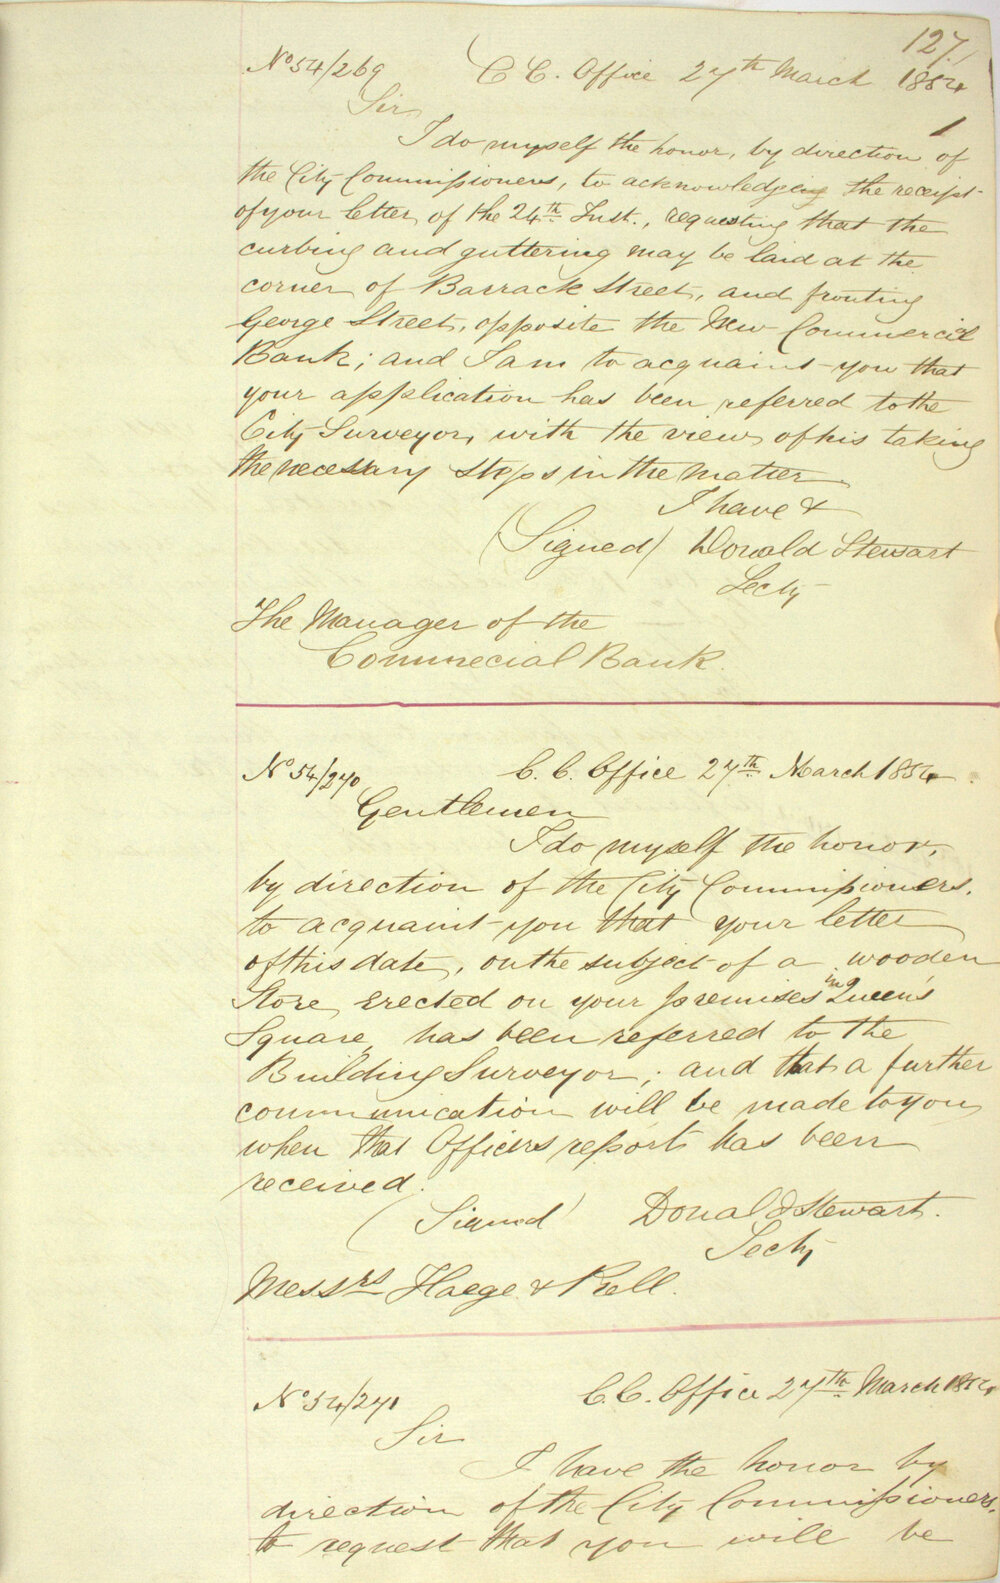 127
No 54/269 C C. Office 27th March 1854
Sir
I do myself the honor, by direction of
the City Commissioners, to acknowledgeing the receipt
of your letter, of the 24th Inst., requesting that the
curbing and guttering may be laid at the
corner of Barrack Street, and fronting
George Street, opposite the New Commercial
Bank; and I am to acquaint you that
your application has been referred to the
City Surveyor, with the view of his taking
the necessary steps in the matter.
I have &
(Signed) Donald Stewart
Secty
The Manager of the
Commecial Bank.
No 54/270 C. C. Office 27th March 1854.
Gentlemen
I do myself the honor,
by direction of the City Commissioners.
to acquaint you that your letter
of this date, on the subject of a wooden
Store, erected on your premises in Queen's
Square has been referred to the
Building Surveyor; and that a further
communication will be made to you
when that Officers report has been
received.
(Signed) Donald Stewart.
Secty
Messrs Haege & Prell.
No 54/271 C.C. Office 27th March 1854
Sir
I have the honor by
direction of the City Commissioners,
to request that you will be